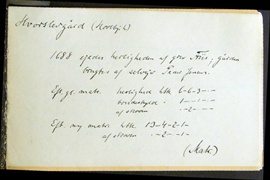 Hvorslevgård (Hvorslev)
1688 ejedes herligheden af grev Friis; gården
bruges af selvejer Jens Jensen.
Ef. gl. matr. herlighed htk 6-6-3-
bondeskyld - 1 - -
af skoven - -2- -
Eft. ny matr. htk 13-4-2-1-
af skoven - -2- -1
(Matr.)